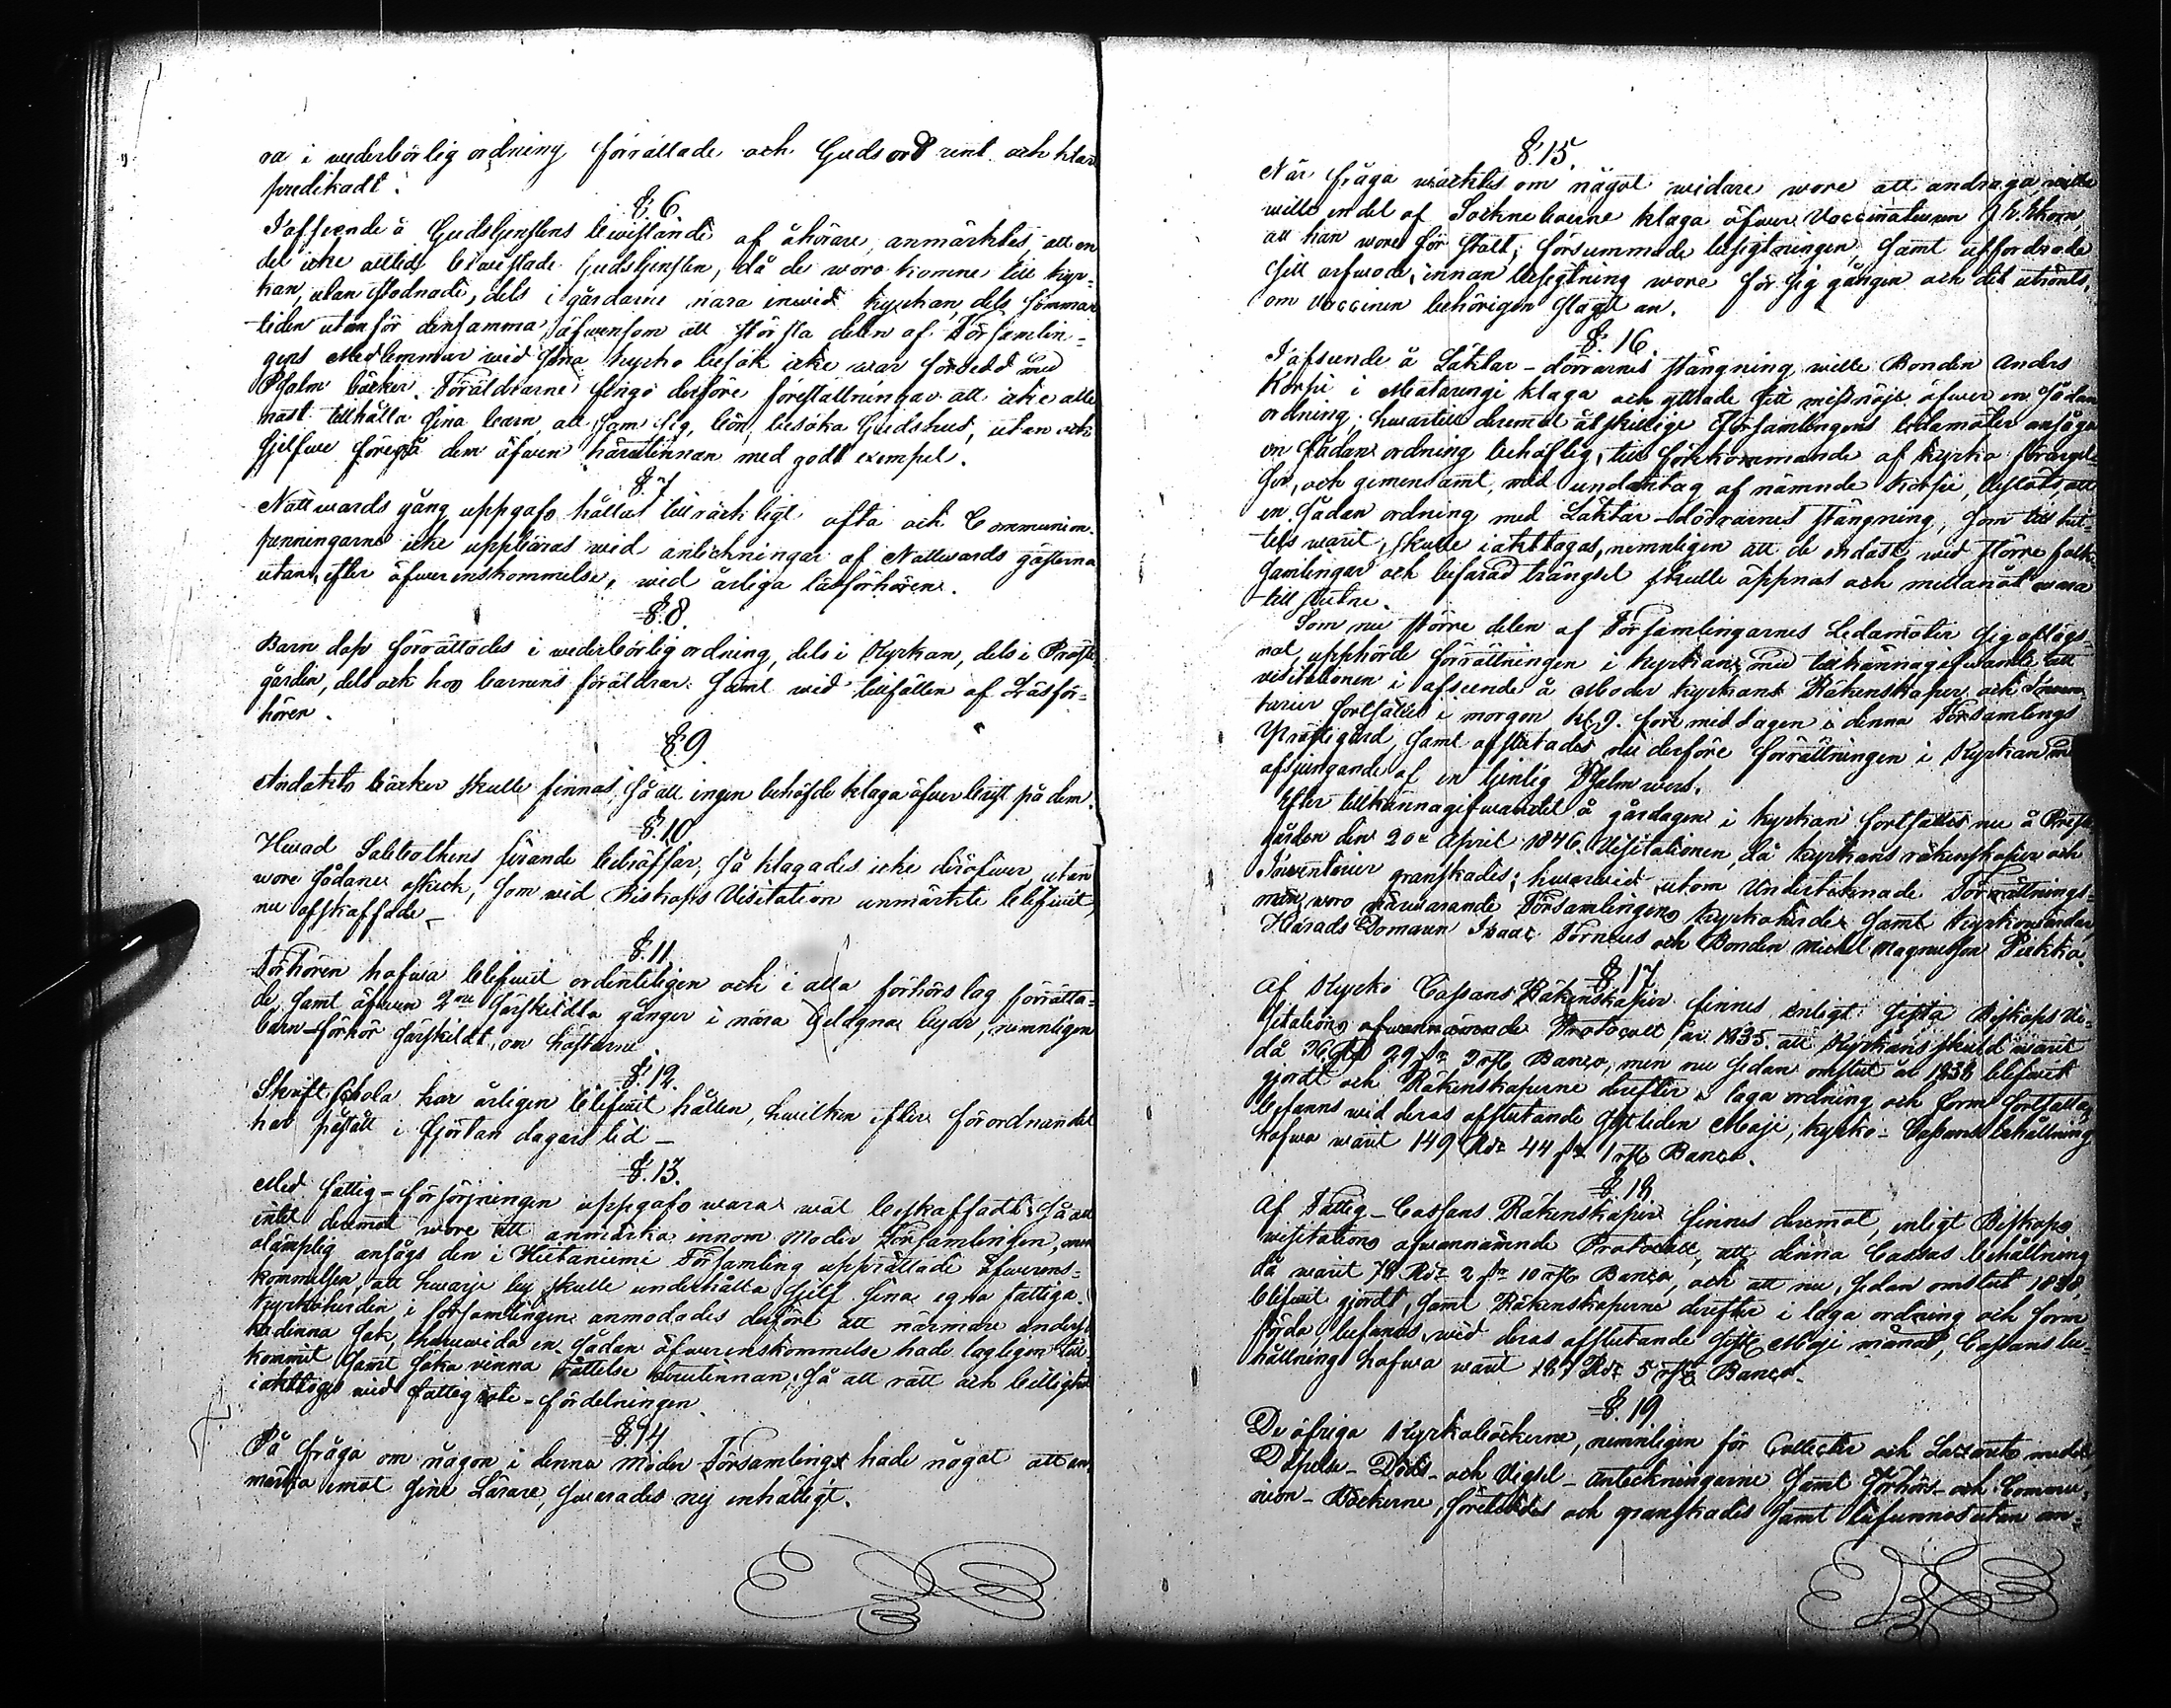 ra i wederbörlig ordning förrättade och Guds ord rent och klar
predikadt.
§. 6.
I afseende å Gudstjenstens bewistande af åhörare, anmärktes, att en
del icke alltid bewistade Gudstjensten, då de woro komne till kyr-
kan, utan stodnade, dels i gårdarne nära inwid kyrkan, dels sommar
tiden utanför densamma, äfwensom att största delen af Församlin-
gens Medlemmar wid sina kyrko besök icke war försedd med
Psalm böcker. Föräldrarne fingo derföre föreställningar att icke alle
nast tillhålla sina barn, att som sig bör, besöka Guds hus, utan ock
sjelfwe föregå dem äfwen härutinnan med godt exempel.
§. 7.
Nattwards gång uppgafs hållas tillräckligt ofta och Communion
penningarne icke uppbäras wid anteckningar af Nattwards gästerna
utan, efter öfwerenskommelse, wid årliga läsförhören.
§. 8.
Barn dop förrättades i wederbörlig ordning, dels i Kyrkan, dels i Prest
gården, dels ock hos barnens föräldrar samt wid tillfällen af Läsför-
hören.
§. 9.
Andakts böcker skulle finnas, så att ingen behöfde klaga öfwer brist på dem.
§. 10.
Hwad Sabbathens firande beträffar, så klagades icke deröfwer, utan
wore sådane oskick, som wid Biskops Visitation anmärkte blefwit,
nu afskaffade.
§. 11.
Förhören hafwa blefwit ordenteligen och i alla förhörs lag förrätta-
de, samt äfwen 2ne särskildta gånger i nära belägna byar, nemnligen
barn-förhör särskildt om höstarne.
§. 12.
Skrift Schola har årligen blefwit hållen, hwilken efter förordnandet
har påstått i fjorton dagars tid –
§. 13.
Med fattig-försörjningen uppgafs wara wäl beskaffadt, så att
intet deremot wore att anmärka innom Moder Församlingen, men
olämplig ansågs den i Hietaniemi Församling upprättade öfwerens-
kommelsen, att hwarje by skulle underhålla sjelf sina egna fattiga.
Kyrkoherden i församlingen anmodades derföre att närmare undersö
ka denna sak, huruwida en sådan öfwerenskommelse hade lagligen till-
kommit samt söka winna rättelse derutinnan, så att rätt och billighet
iakttoges wid fattig - fördelningen.
§. 14.
På fråga om någon i denna Moder Församling hade något att an-
märka emot sine Lärare, swarades nej enhälligt.
§. 15.
När fråga wäcktes om något widare wore att andraga,
wille en del af Sockneboerne klaga öfwer Vaccinateuren
att han wore för stolt, försummade besigtningen, samt utfordrade
sitt arfwode, innan besigtning wore för sig gången och det utrönts,
om vaccinen behörigen slagit an.
§. 16.
I afseende å Läktar-dörrarnes stängning wille Bonden Anders
Korpi i Matarengi klaga och yttrade sitt missnöje öfwer en sådan
ordning; hwartill deremot åtskillige Församlingens ledamöter ansågo
en sådan ordning behöflig, till förekommande af kyrko förargel-
ser, och gemensamt, med undantag af nämnde Korpi, beslöts, att
en sådan ordning med Läktar-dörrarnes stängning, som till hit-
tils warit, skulle iakttagas, nemnligen att de endast wid större folk
samlingar och befarad trängsel skulle öppnas och mellanåt wara
till slutne.
Som nu större delen af Församlingarnes Ledamöter sig aflägs-
nat, upphörde förrättningen i kyrkan, med tillkännagifwande att
visitationen i afseende å Moder kyrkans Räkenskaper och Inwen-
tarier fortsättes i morgon kl. 9. före middagen i denna Församlings
Prästegård, samt afslutades nu derföre förrättningen i Kyrkan med
afsjungande af en tjenlig Psalm wers.
Efter tillkännagifwandet å gårdagen i kyrkan fortsattes nu å Prest
gården den 20de April 1846. Visitationen, då kyrkans räkenskaper och
Inwentarier granskades; hwarwid, utom Undertecknade Förrättnings-
män, woro närwarande Församlingens Kyrkoherde samt Kyrkowärdar,
Härads Domaren Isaac Förneus och Bonden Michel Magnusson Piekko.
§. 17.
Af Kyrko Cassans Räkenskaper finnes enligt sista Biskops Vi-
sitations ofwannämnde Protocoll år 1835. att Kyrkans skuld warit
då 29 sk 3 rst Banco, men nu sedan omslut år 1838 blefwit
gjordt och Räkenskaperne derefter i laga ordning och form fortsattas,
befanns wid deras afslutande sistleden Maji, kyrko-Cassans behållning
hafwa warit 149 Rdr 44 sk 1 rst Banco.
§. 18.
Af Fattig-Cassans Räkenskaper finnes deremot, enligt Biskops
wisitations ofwannämnde Protocoll, att denna Cassas behållning
då warit 78 Rdr 2 sk 10 rst Banco, och att nu, sedan omslut 1838,
blefwit gjordt, samt Räkenskaperne derefter i laga ordning och form
förda befanns, wid deras afslutande sistl. Maji månad, Cassans be-
hållning hafwa warit 187 Rdr 5 rst Banco.
§. 19.
De öfriga Kyrkoböckerne, nemnligen för Collecter och Lazaretts medel,
Döpelse- Döds- och Vigsel- anteckningarne samt Förhörs- och Commu-
nion-Böckerne, företeddes och granskades samt befunnos utan an-